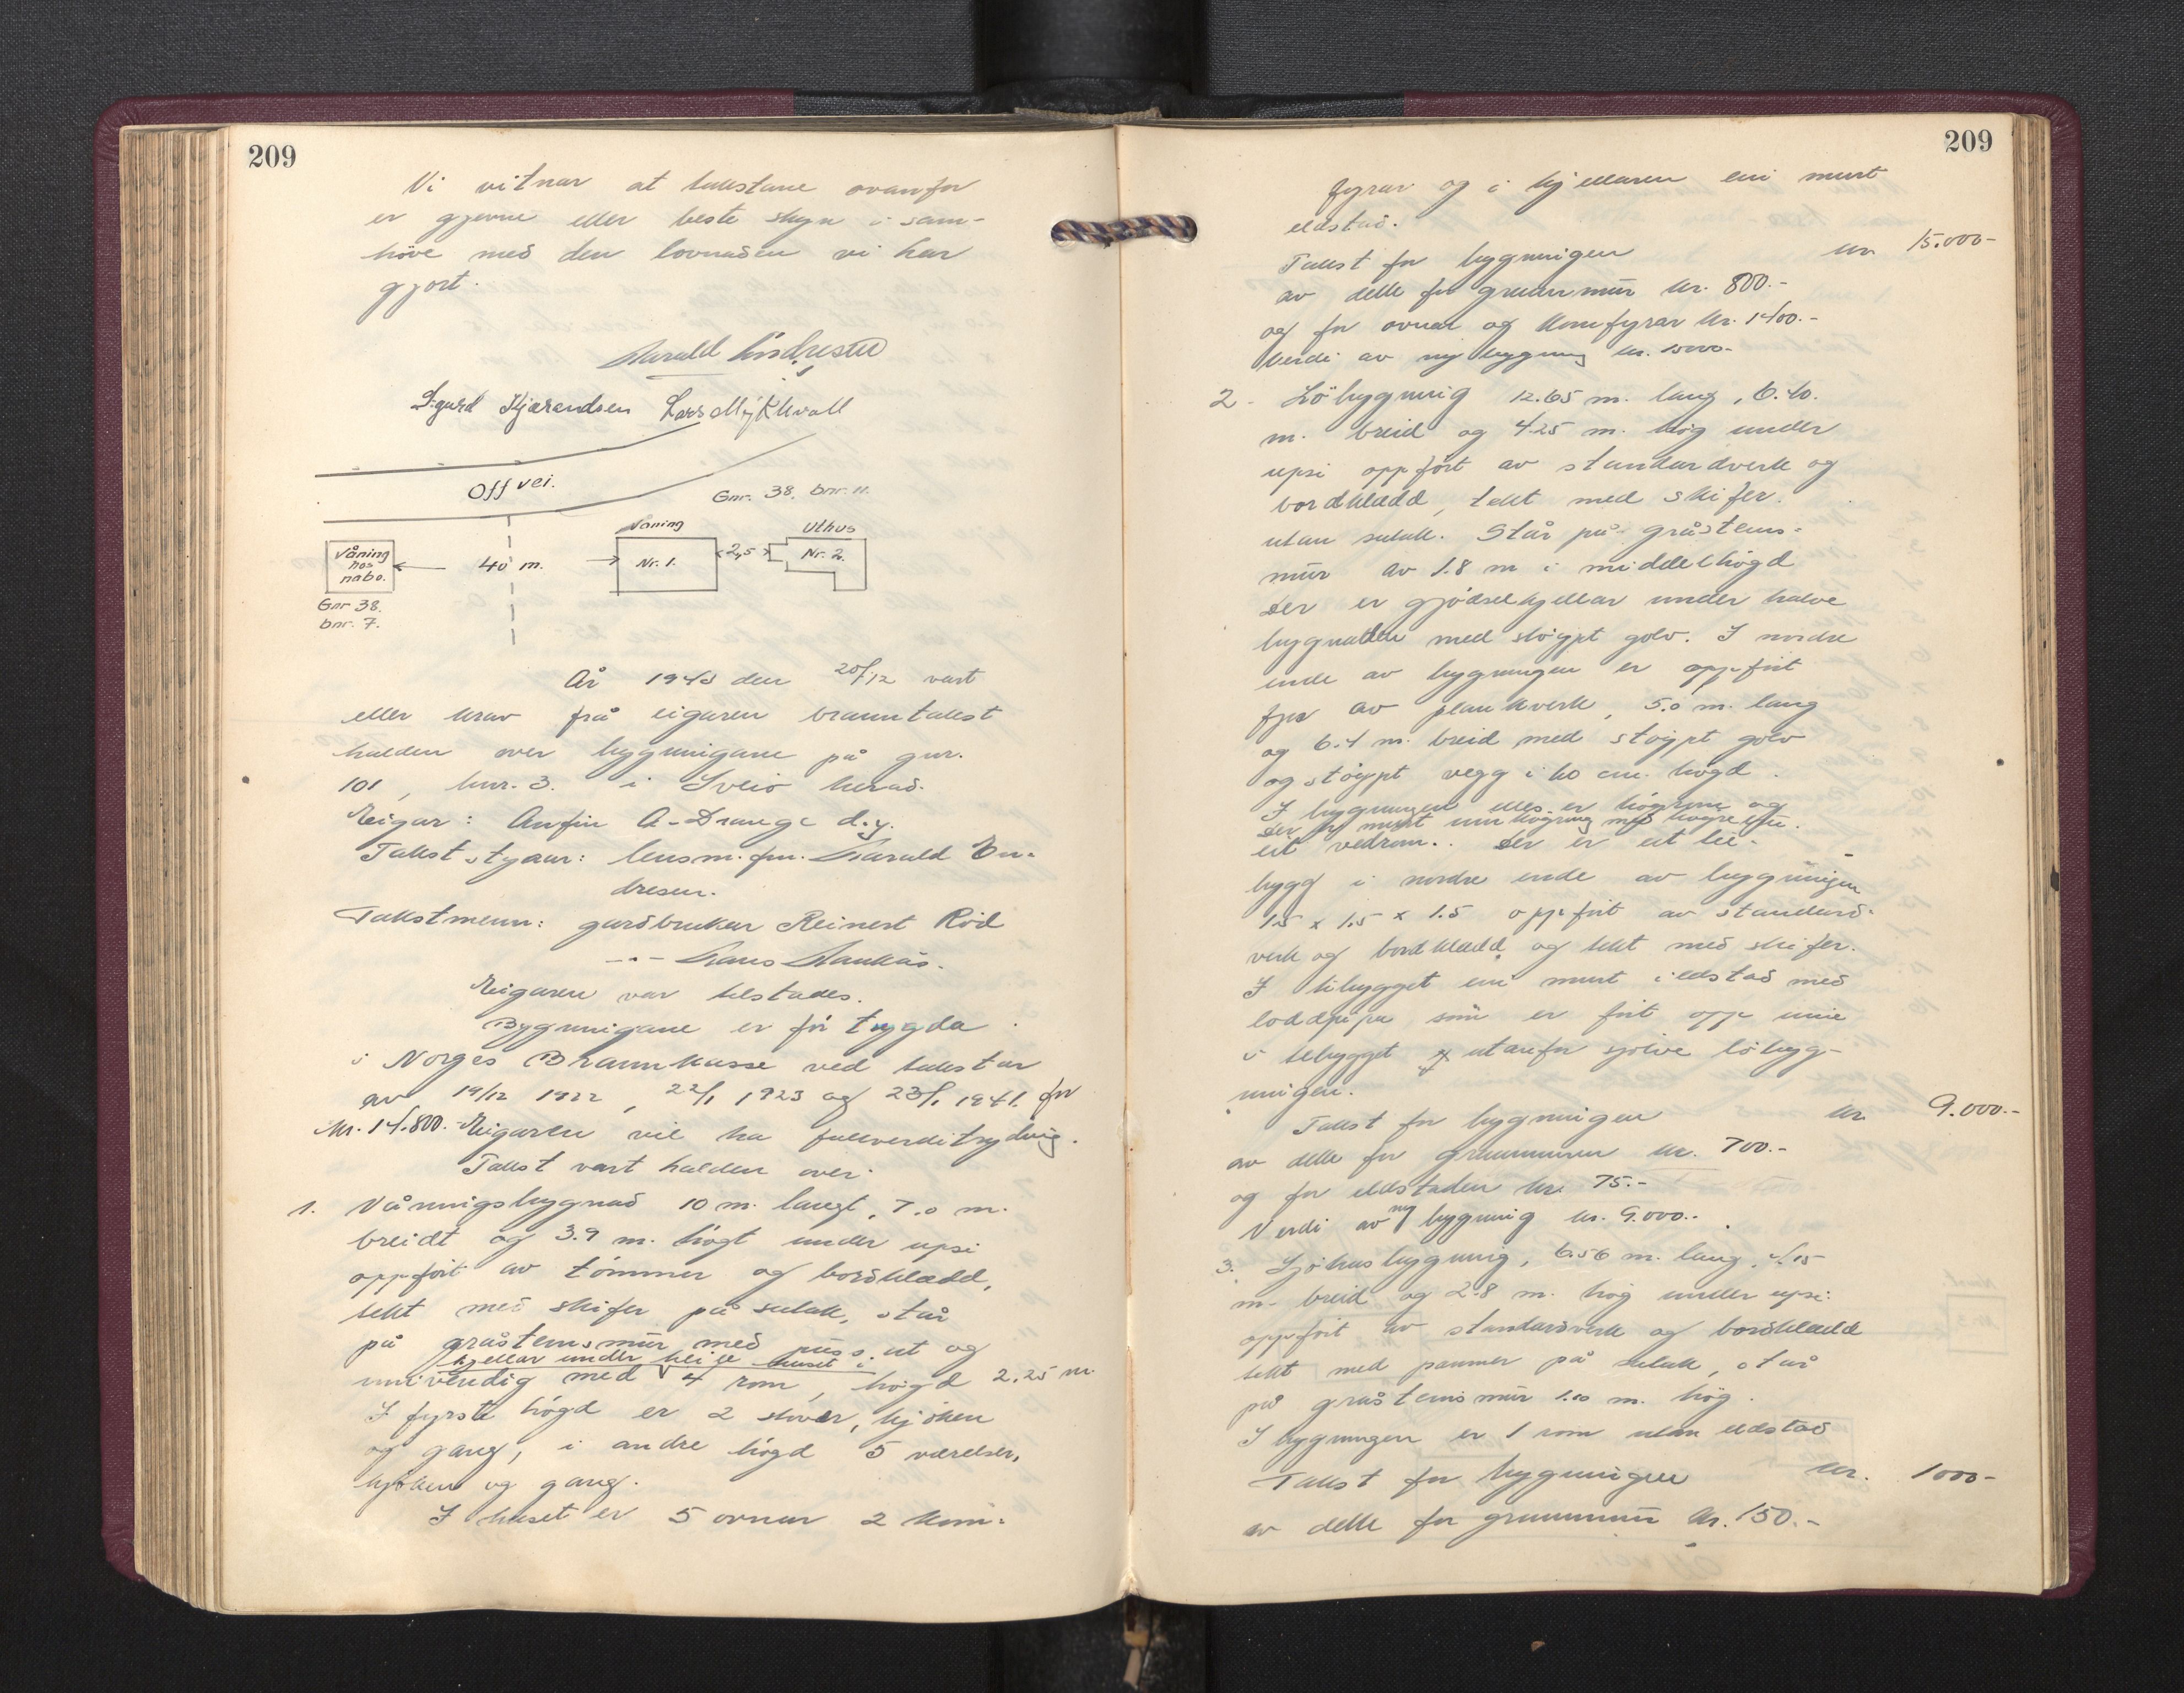 209
Vi vitnar at takstane ovanfor
er gjevne etter beste skyn i sam-
høve med den lovnaden vi har
gjort.
Harald Endresen
Sigurd Kjærandsen Lars Myklevoll
Off vei.
Gnr. 38, bnr. 11.
Våning
Uthus
Våning
hos
nabo.
40 m.
Nr. 1.
2,5
Nr. 2.
Gnr 38.
bnr. 7.
År 1943 den 20/12 vart
etter krav frå eigaren branntakst
halden over bygningane på gnr.
101, bnr. 3. i Sveio herad.
Eigar: Anfin A. Drange d.y.
Takststyrar: lensm.fm. Harald En-
dresen.
Takstmenn: gardbrukar Reinert Röd
-"- Hans Haukås.
Eigaren var tilstades.
Bygningane er för trygda
i Norges Brannkasse ved takstar
av 19/12 1922, 22/1 1923 og 23/1 1941 for
kr. 14.800. Eigaren vil ha fullverditrygding.
Takst vart halden over:
1. Våningsbygnad 10 m. langt, 7.0 m.
breidt og 3.9 m. högt under upsi
oppfört av tömmer og bordklædd,
tekt med skifer på sutak, står
på gråsteinsmur med puss ut og
kjellar under heile huset i
innvendig med 4 rom, högd 2.25 m.
I fyrste högd er 2 stover, kjöken
og gang, i andre högd 5 værelser,
kjöken og gang.
I huset er 5 ovnar 2 kom-
209
fyrar og i kjellaren ein murt
eldstad.
Takst for bygningen kr. 15.000-
av dette for grunnmur kr. 800.-
og for ovnar og komfyrar kr. 1400.-
Verdi av ny bygning kr. 15000-
2. Löbygning 12.65 m. lang, 6.40.
m. breid og 4.25 m. hög under
upsi oppfört av standardverk og
bordklædd, tekt med skifer.
utan sutak. Står på gråsteins-
mur av 1.8 m i middelhögd
Der er gjödselkjellar under halve
bygnaden med stöypt golv. I nordre
ende av bygningen er oppfört
fjös av plankverk, 5.0 m. lang
og 6.4 m. breid med stöypt golv
og stöypt vegg i 60 cm. högd.
I bygningen elles er höyrom og
eit vedrom. Der er eit til-
bygg i nordre ende av bygningen
1.5 x 1.5 x 1.5 oppfört av standard-
verk og bordklædd, og tekt med skifer.
I tilbygget ein murt ildstad med
loddpipa som er fört opp inne
i tilbygget utanfor sjölve löbyg-
ningen.
Takst for bygningen kr. 9.000.-
av dette for grunnmuren kr. 700.-
og for eldstaden kr. 75.-
Verdi av ny bygning kr. 9.000.-
3. Sjöhusbygning, 6.56 m. lang, 4.15
m. breid og 2.8 m. hög under upsi.
oppfört av standardverk og bordklædd
tekt med panner på sutak, står
på gråsteinsmur 1.10 m. hög.
I bygningen er 1 rom utan eldstad
Takst for bygningen kr. 1000-
av dette for grunnmur kr. 150.-